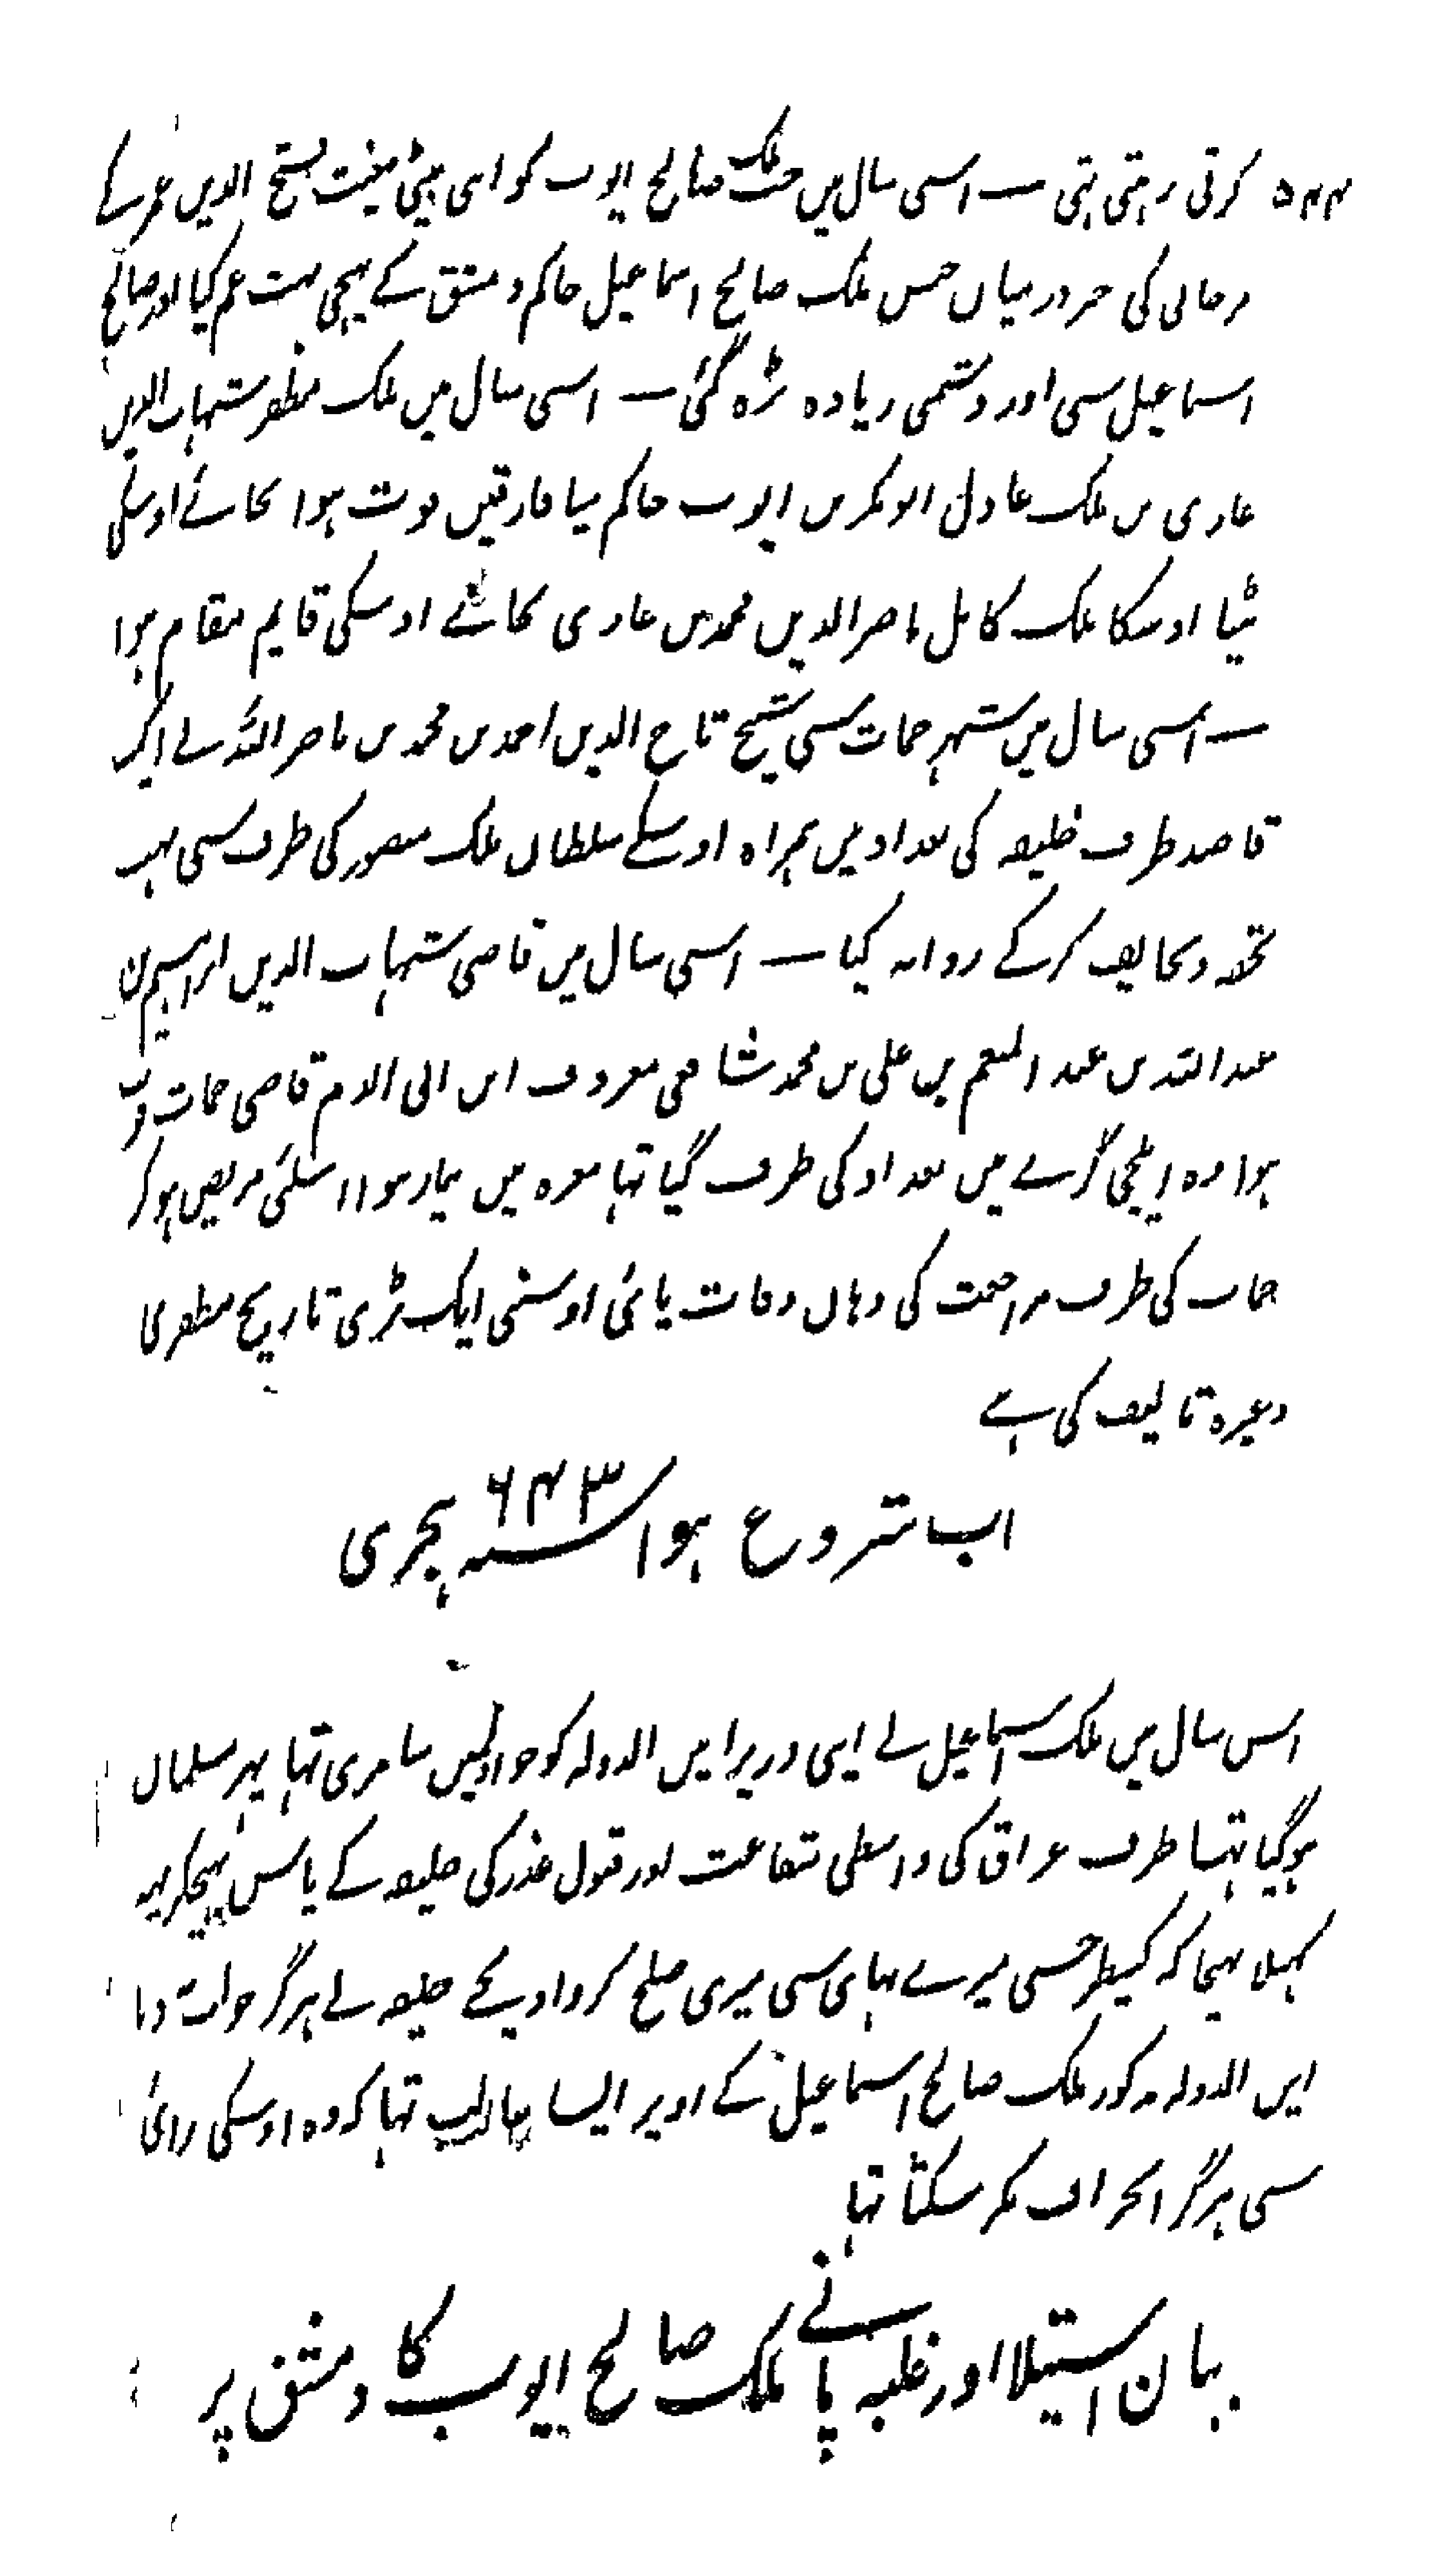 ۵۴۴ کرتی رہتی تہی — اسی سال میں جب ملک صالح ایوب کو اپنی بیٹی مغیث فتح الدین عمر کے
مرجانی کی خبر درمیان حبس ملک صالح اسماعیل حاکم دمشق کے پہنچی بہت غم کیا اور صالح
اسماعیل سی اور دشمنی زیادہ بڑہ گئی — اسی سال میں ملک مظفر شہاب الدین
غازی بن ملک عادل ابوبکر بن ایوب حاکم میافارقین فوت ہوا بجائے اوسکی
بیٹا اوسکا ملک کامل ناصر الدین محمد بن غازی بجائے اوسکی قایم مقام ہوا
— اسی سال میں شہر حمات سی شیخ تاج الدین احمد بن محمد بن ناصر اللہ نے ایک
قاصد طرف خلیفہ کی بغداد میں ہمراہ اوسکے سلطان ملک منصور کی طرف سی بہت
تحفہ و تحایف کرکے روانہ کیا — اسی سال میں قاضی شہاب الدین ابراہیم بن
عبد اللہ بن عبد المنعم بن علی بن محمد شافعی معروف ابن ابی الدم قاضی حمات فوت
ہوا وہ ایلچی گرے میں بغداد کی طرف گیا تہا معرہ میں بیمار ہوا اسلئی مریض ہوکر
حمات کی طرف مراجعت کی وہاں وفات پائی اوسنی ایک بڑی تاریخ مظفری
وغیرہ تالیف کی ہے
اب شروع ہوا سنہ ۶۴۳ ہجری
اس سال میں ملک اسماعیل نے اپنی وزیر امین الدولہ کو جو اولیں سامری تہا پہر مسلمان
ہوگیا تہا طرف عراق کی واسطی شفاعت اور قبول عذر کی خلیفہ کے پاس بہیجکر یہہ
کہلا بہیجا کہ کسیطرحسی میرے بہای سی میری صلح کروا دیجے خلیفہ نے ہرگز جواب ندیا
امین الدولہ مذکور ملک صالح اسماعیل کے اوپر ایسا غالب تہا کہ وہ اوسکی رائی
سی ہرگز انحراف نکر سکتا تہا
بیان استیلا اور غلبہ پانے ملک صالح ایوب کا دمشق پر